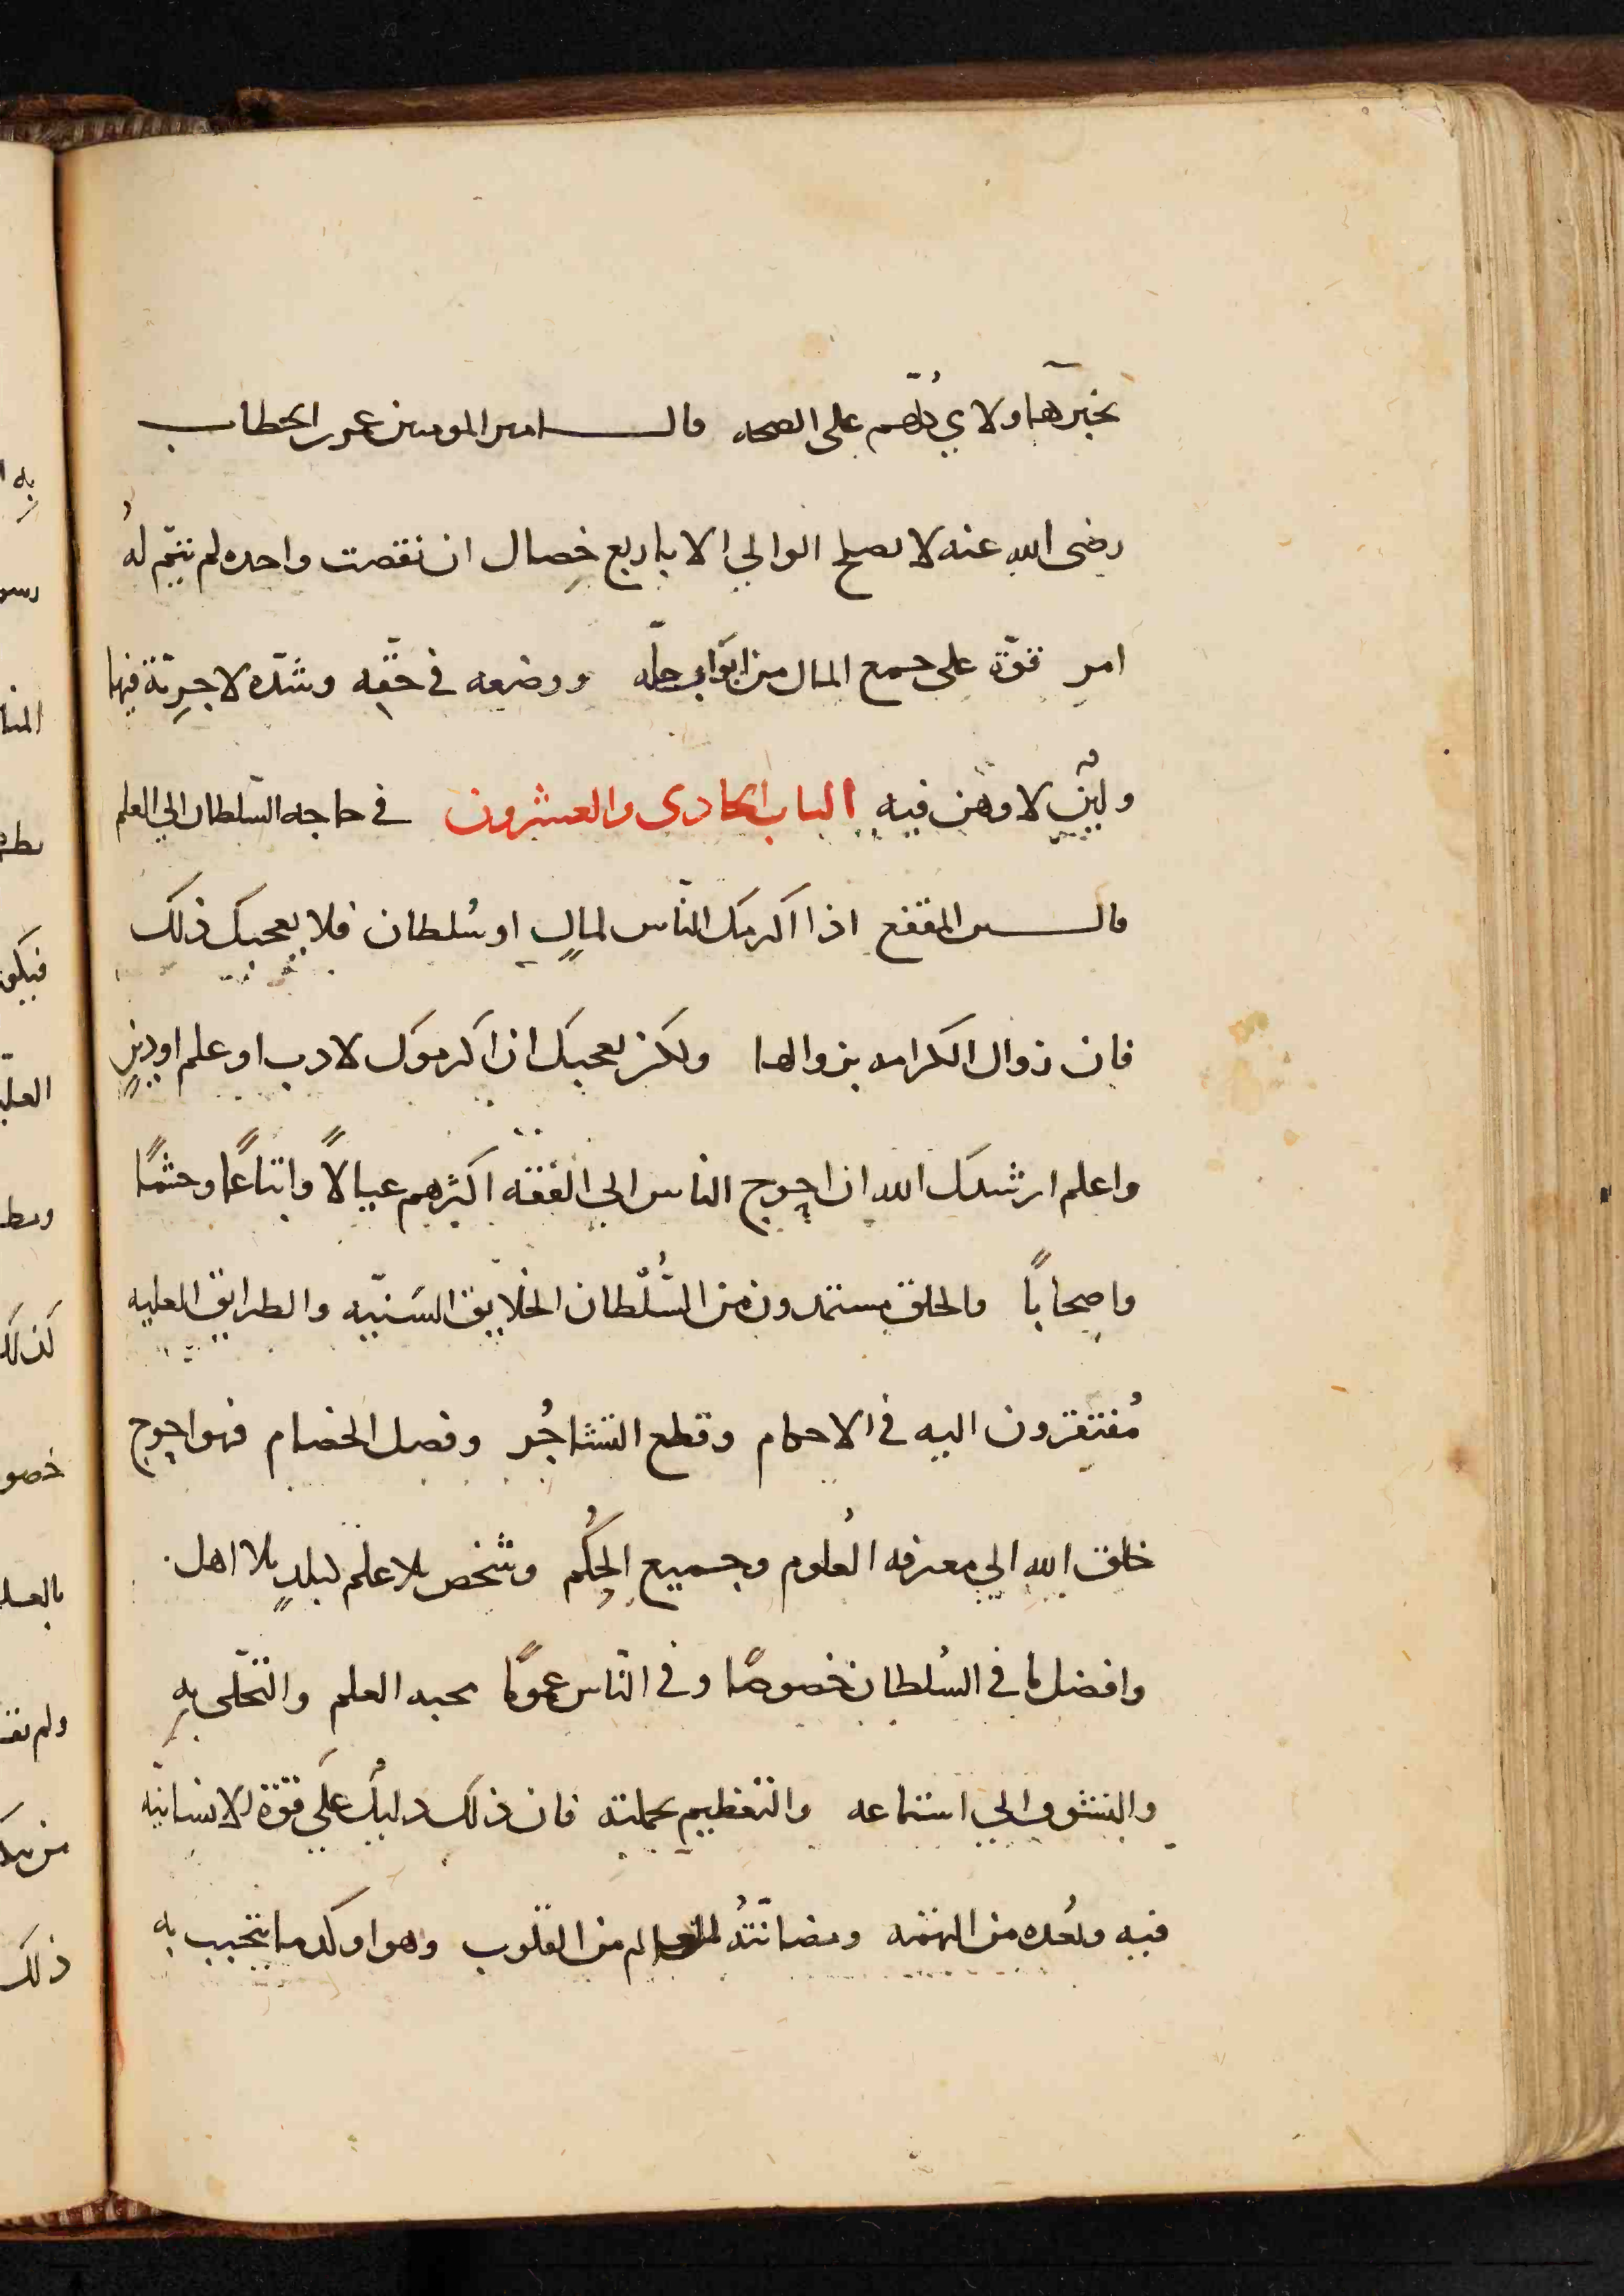 بخبرها ولا ي على الصحه قال امير المومنين عمر بن الخطاب
رضى الله عنه لا يصلح الوالي الا باربع خِصال ان نقصت واحده لم يتمّ لهُ
امر قوّة على جمع المال من ابواب حلّه ووضعه في حقّه وشدّه لا جبريّة فيها
ولينٌ لا وهن فيه الباب الحادى والعشرون في حاجه السّلطان الي العلم
قال بن المقفع اذا اكرمك النّاس لمالٍ او سُلطان فلا يعجبك ذلك
فان زوال الكرامه بزوالها ولكن ليعجبك اذا اكرموك لادب او علم او دينٍ
واعلم ارشدك الله ان احوج الناس الي الفقه اكثرهم عيالاً واتباعًا وحشمًا
واصحاباً والخلق مستمدون من السُّلطان الخلايق السَنيّه والطرايق العليه
مُفتقرون اليه في الاحكام وقطع التشاجُر وفصل الخصام فهو احوج
خلق الله الي معرفه العُلوم وجميع الحِكُم وشخص بلا علم كبلدٍ بلا اهل
وافضل ما في السُلطان خصوصًا وفي النّاس عمومًا محبه العلم والتحلّى بهِ
والتشوق الي استماعه والتعظيم لحملته فان ذلك دليلٌ علَى قوّة الانسانيّه
فيه وبُعده من البهيميه ومضاهاتهُ للعالم من القلوب وهو اوكد ما يتحبب به
به
رسو
فيكو
كذلك
خصو
ذلك